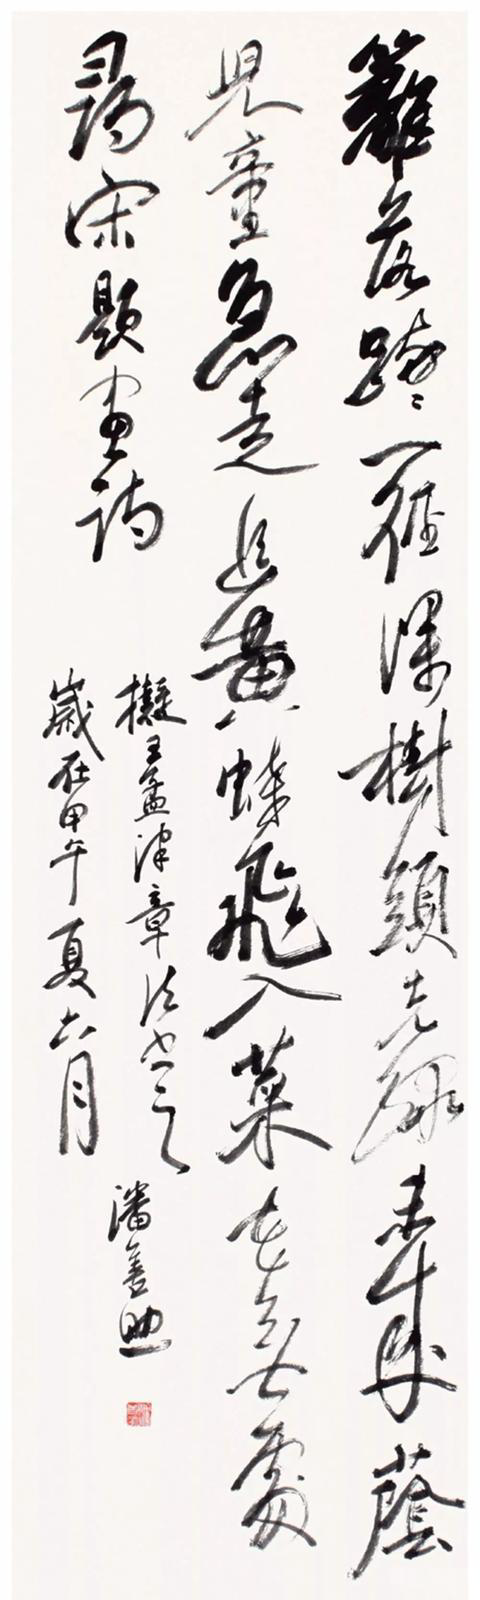 籬落疎〻一徑深樹頭先綠未成蔭
兒童急走追黃蝶飛入菜花無處
尋宋題畫詩
擬王孟津章法書之
歲在甲午夏六月
潘善助